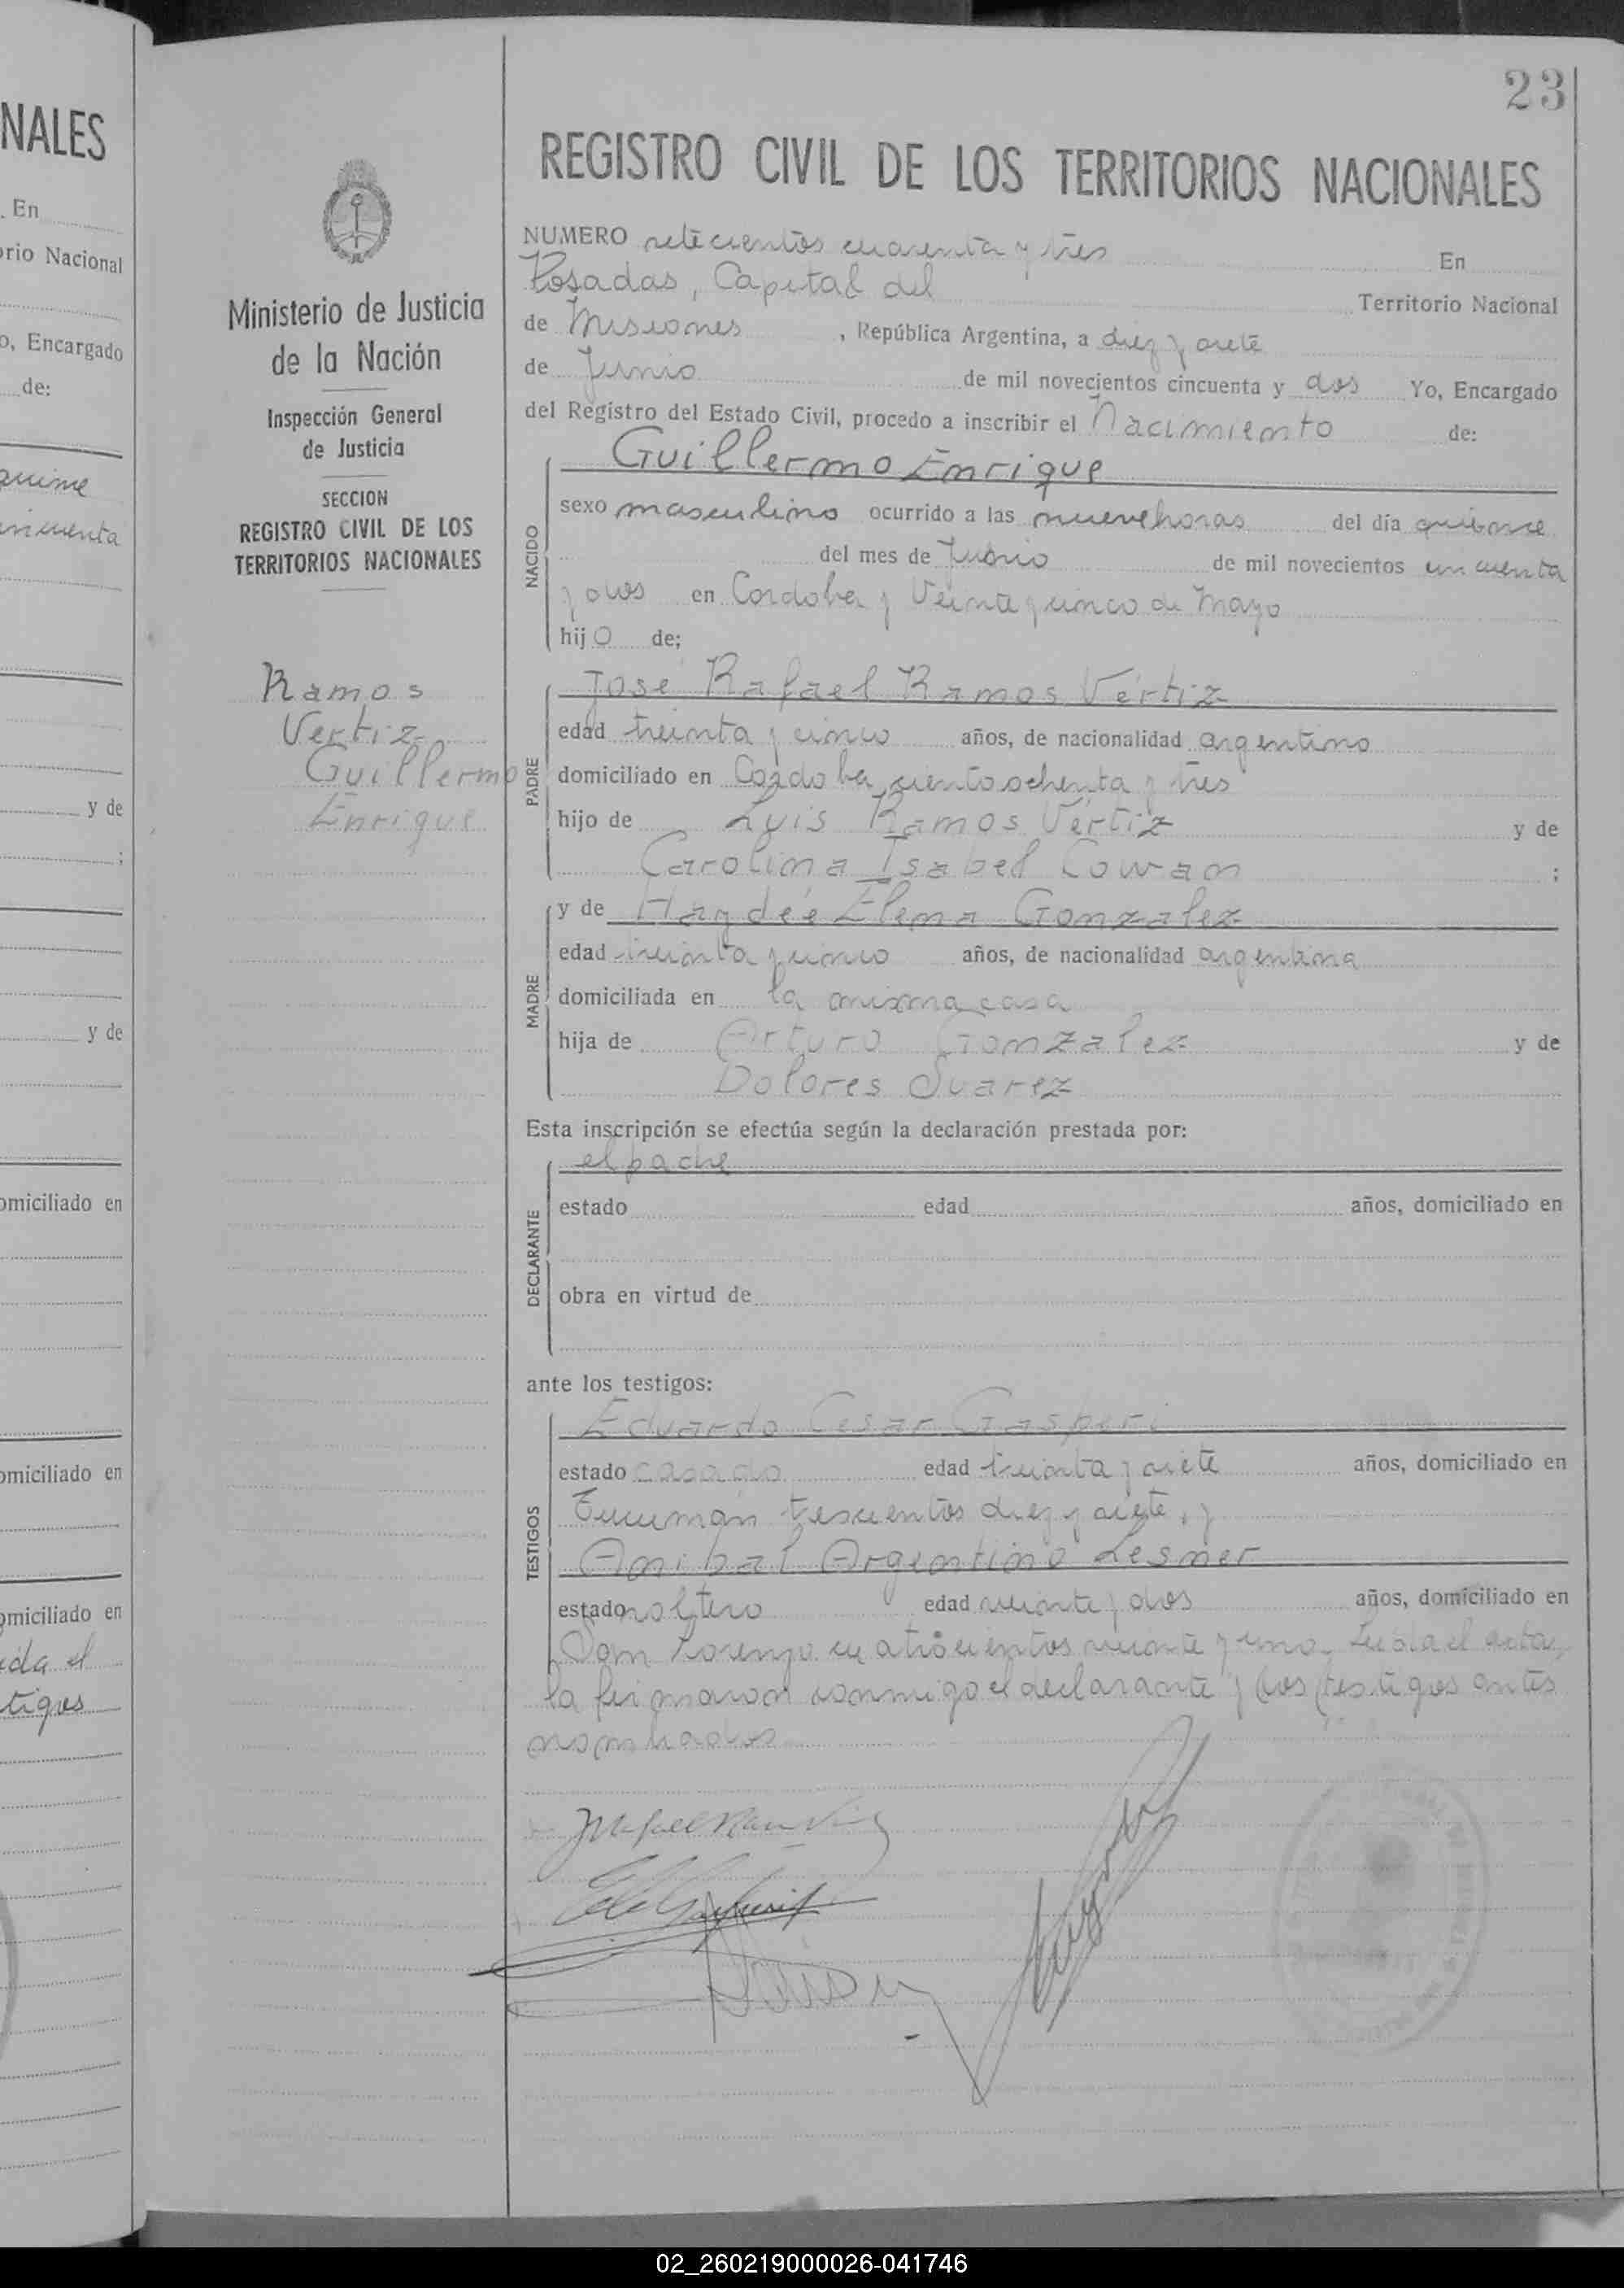 NALES
. En
orio Nacional
o, Encargado
de:
y de
;
y de
omiciliado en
omiciliado en
omiciliado en
ida el
tigos
Ministerio de Justicia
de la Nación
Inspección General
de Justicia
SECCION
REGISTRO CIVIL DE LOS
TERRITORIOS NACIONALES
Ramos
Vertiz
Guillermo
Enrique
23
REGISTRO CIVIL DE LOS TERRITORIOS NACIONALES
NUMERO setecientos cuarenta y tres En
Posadas, Capital del Territorio Nacional
de Misiones, República Argentina, a diez y siete
de Junio de mil novecientos cincuenta y dos Yo, Encargado
del Registro del Estado Civil, procedo a inscribir el Nacimiento de:
Guillermo Enrique
NACIDO
sexo masculino ocurrido a las nueve horas del día quince
del mes de Junio de mil novecientos cincuenta
y dos en Cordoba y Veinte y cinco de Mayo
hijo de;
José Rafael Ramos Vértiz
PADRE
edad treinta y cinco años, de nacionalidad argentino
domiciliado en Cordoba ciento ochenta y tres
hijo de Luis Ramos Vértiz y de
Carolina Isabel Cowan ;
y de Haydée Elena Gonzalez
MADRE
edad treinta y cinco años, de nacionalidad argentina
domiciliada en la misma casa
hija de Arturo Gonzalez y de
Dolores Suarez
Esta inscripción se efectúa según la declaración prestada por:
el padre
DECLARANTE
estado edad años, domiciliado en
obra en virtud de
ante los testigos:
Eduardo Cesar Gasperi
TESTIGOS
estado casado edad treinta y siete años, domiciliado en
Tucumán trescientos diez y siete, y
Anibal Argentino Lesner
estado soltero edad veinte y dos años, domiciliado en
San Lorenzo cuatrocientos veinte y uno. Leida el acta,
la firmaron conmigo el declarante y los testigos antes
nombrados
02_260219000026-041746